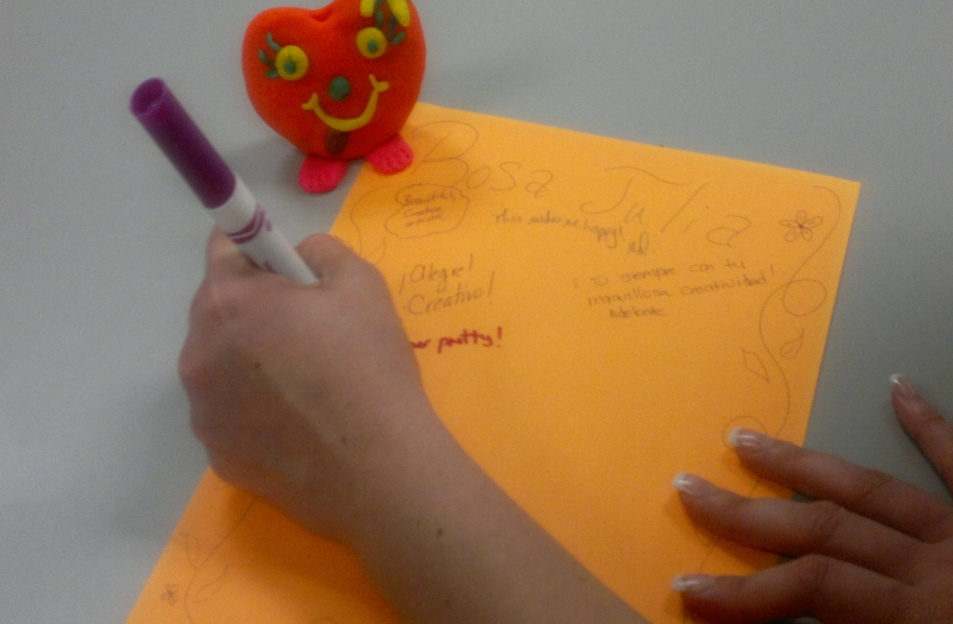 Rosa Julia
Beautiful!
Creative
This makes me happy!
¡Alegre!
¡Creativo!
¡Tú siempre con tu
maravillosa creatividad!
Adelante
pretty!